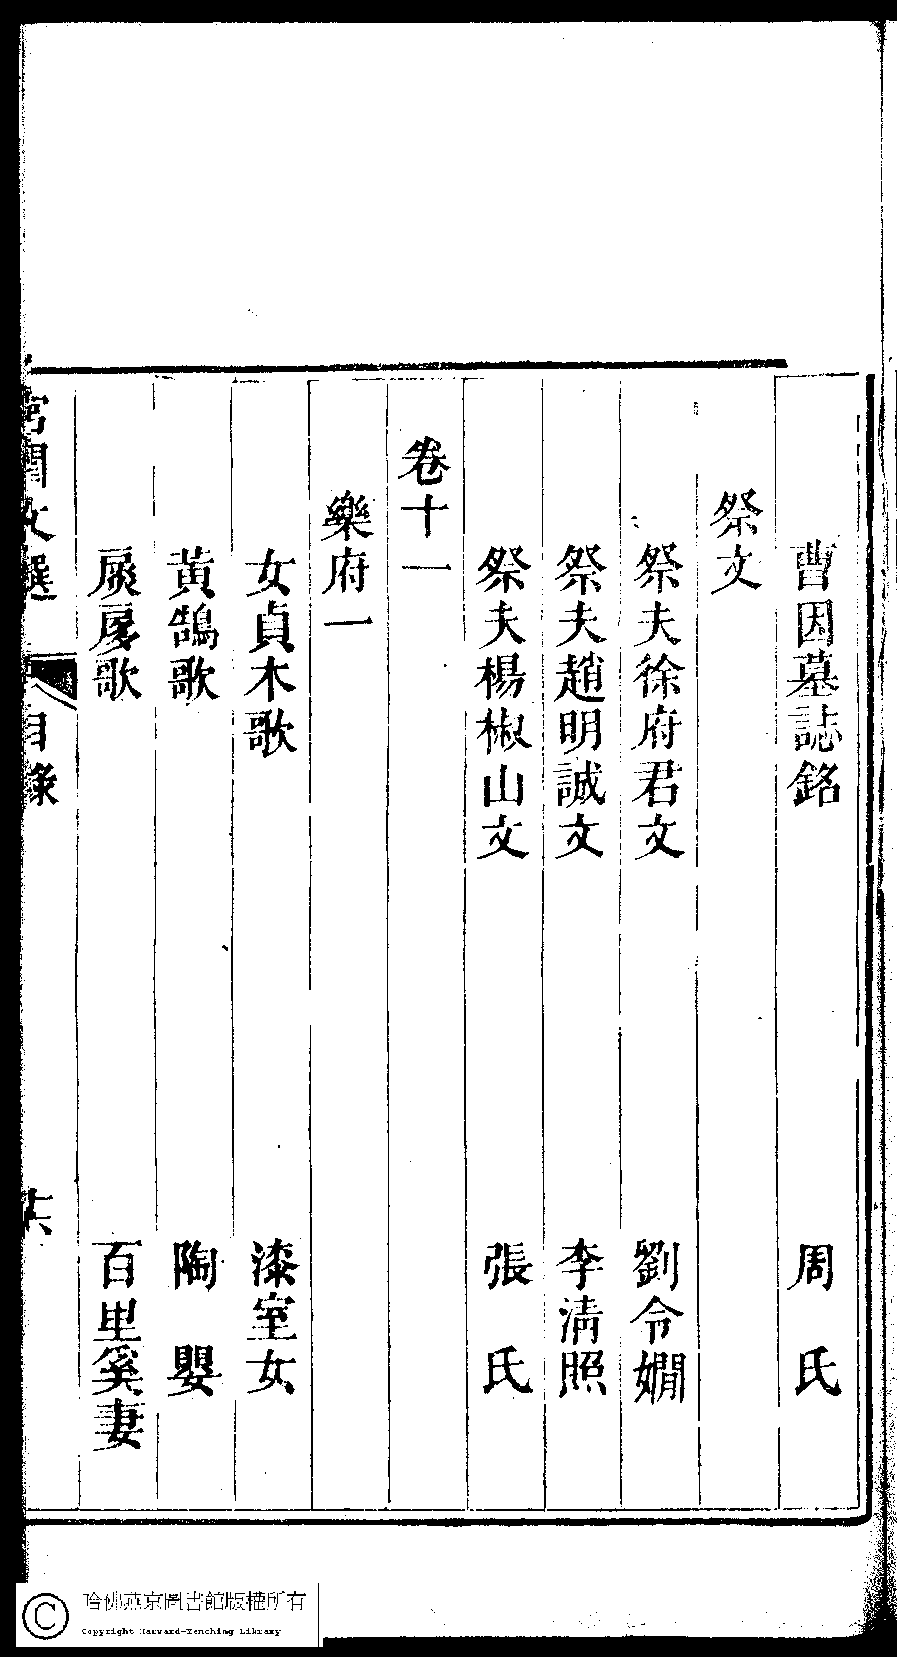 曹因墓誌銘 周氏
祭文
祭夫徐府君文 劉令嫺
祭夫趙明誠文 李清照
祭夫楊椒山文 張氏
卷十一
樂府一
女貞木歌 漆室女
黃鵠歌 陶嬰
扊扅歌 百里奚妻
宮閨文選 目錄
哈佛燕京圖書館版權所有
Copyright Harvard-Yenching Library